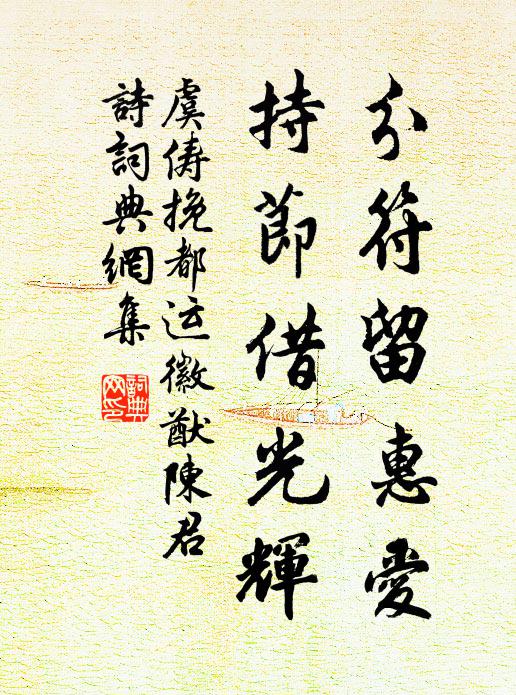 分符留惠愛
持節借光輝
虞儔挽都运徽猷陳君
詩詞典網集
詞典網印